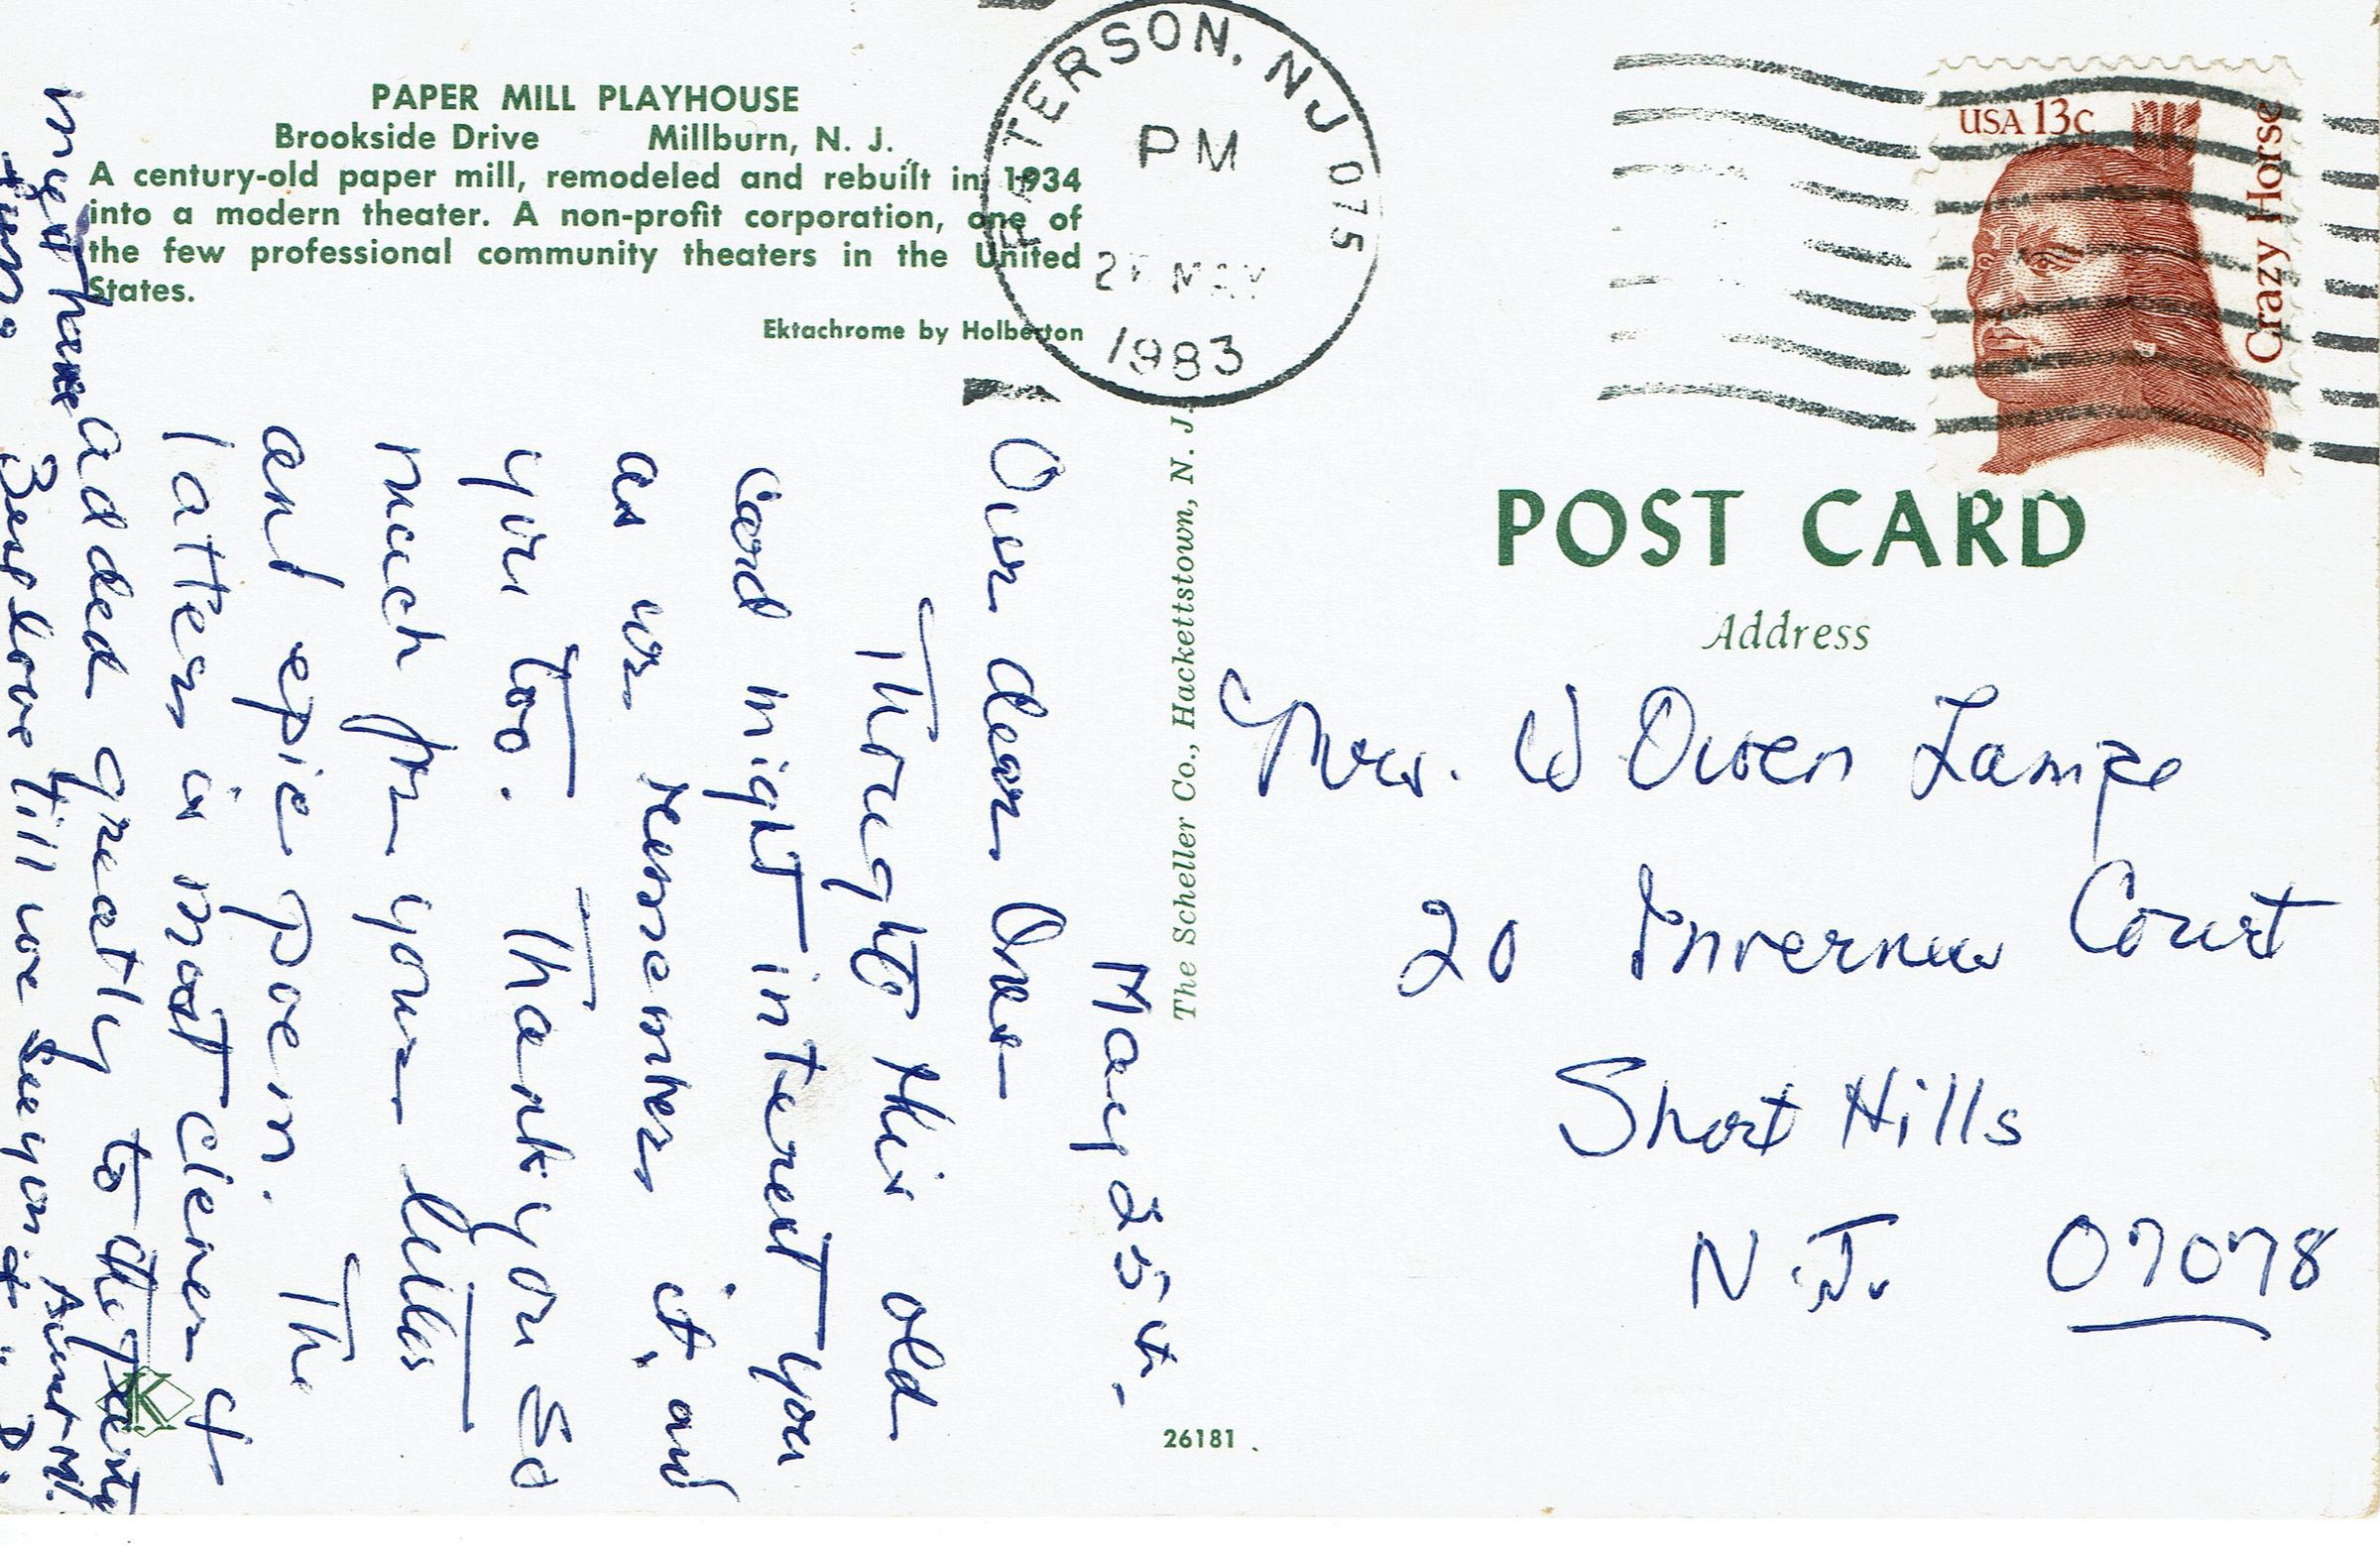 PAPER MILL PLAYHOUSE
Brookside Drive Millburn, N. J.
A century-old paper mill, remodeled and rebuilt in 1934
into a modern theater. A non-profit corporation, one of
the few professional community theaters in the United
States.
Ektachrome by Holberton
PATERSON, NJ 075
PM
MAY
1983
USA 13c
Crazy Horse
POST CARD
Address
Mrs. W Owen Lampe
20 Inverness Court
Short Hills
N.J. 07078
The Scheller Co., Hackettstown, N. J.
26181
K
May 25th-
Our dear Ones-
Thought this old
card might interest you
as you remember it, and
you too. Thank you so
much for your letter
and epic poem. The
latter is most clever &
added greatly to the party
we have
Best love till we see you
Aunt M.